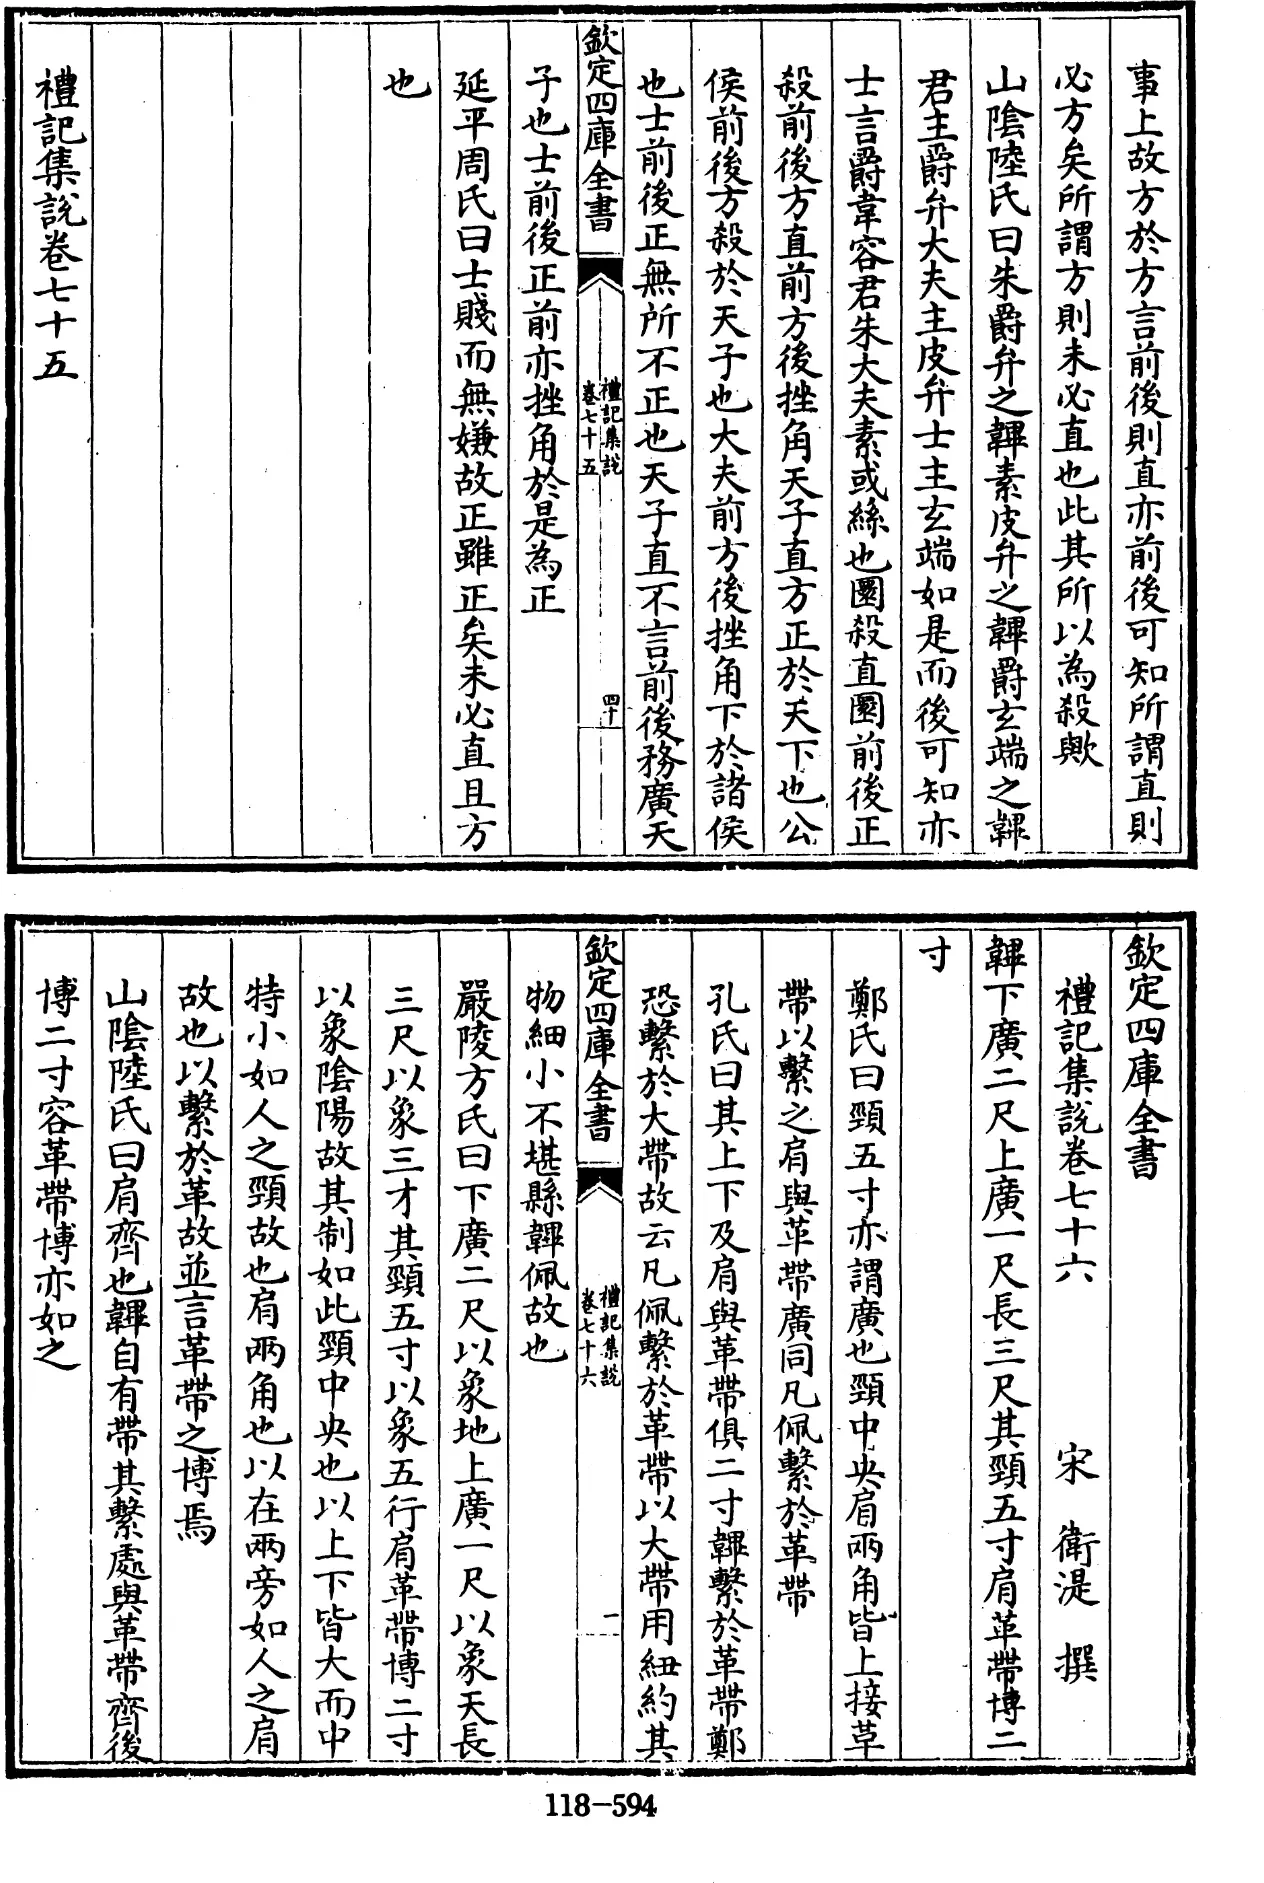 事上故方於方言前後則直亦前後可知所謂直則
必方矣所謂方則未必直也此其所以為殺歟
山陰陸氏曰朱爵弁之韠素皮弁之韠爵玄端之韠
君主爵弁大夫主皮弁士主玄端如是而後可知亦
士言爵韋容君朱大夫素或絲也圜殺直圜前後正
殺前後方直前方後挫角天子直方正於天下也公
侯前後方殺於天子也大夫前方後挫角下於諸侯
也士前後正無所不正也天子直不言前後務廣天
欽定四庫全書
禮記集說
卷七十五
四十
子也士前後正前亦挫角於是為正
延平周氏曰士賤而無嫌故正雖正矣未必直且方
也
禮記集說卷七十五
欽定四庫全書
禮記集說卷七十六 宋 衛湜 撰
韠下廣二尺上廣一尺長三尺其頸五寸肩革帶博二
寸
鄭氏曰頸五寸亦謂廣也頸中央肩兩角皆上接革
帶以繫之肩與革帶廣同凡佩繫於革帶
孔氏曰其上下及肩與革帶俱二寸韠繫於革帶鄭
恐繫於大帶故云凡佩繫於革帶以大帶用紐約其
欽定四庫全書
禮記集說
卷七十六
一
物細小不堪縣韠佩故也
嚴陵方氏曰下廣二尺以象地上廣一尺以象天長
三尺以象三才其頸五寸以象五行肩革帶博二寸
以象陰陽故其制如此頸中央也以上下皆大而中
特小如人之頸故也肩兩角也以在兩旁如人之肩
故也以繫於革故並言革帶之博焉
山陰陸氏曰肩齊也韠自有帶其繫處與革帶齊後
博二寸容革帶博亦如之
118-594